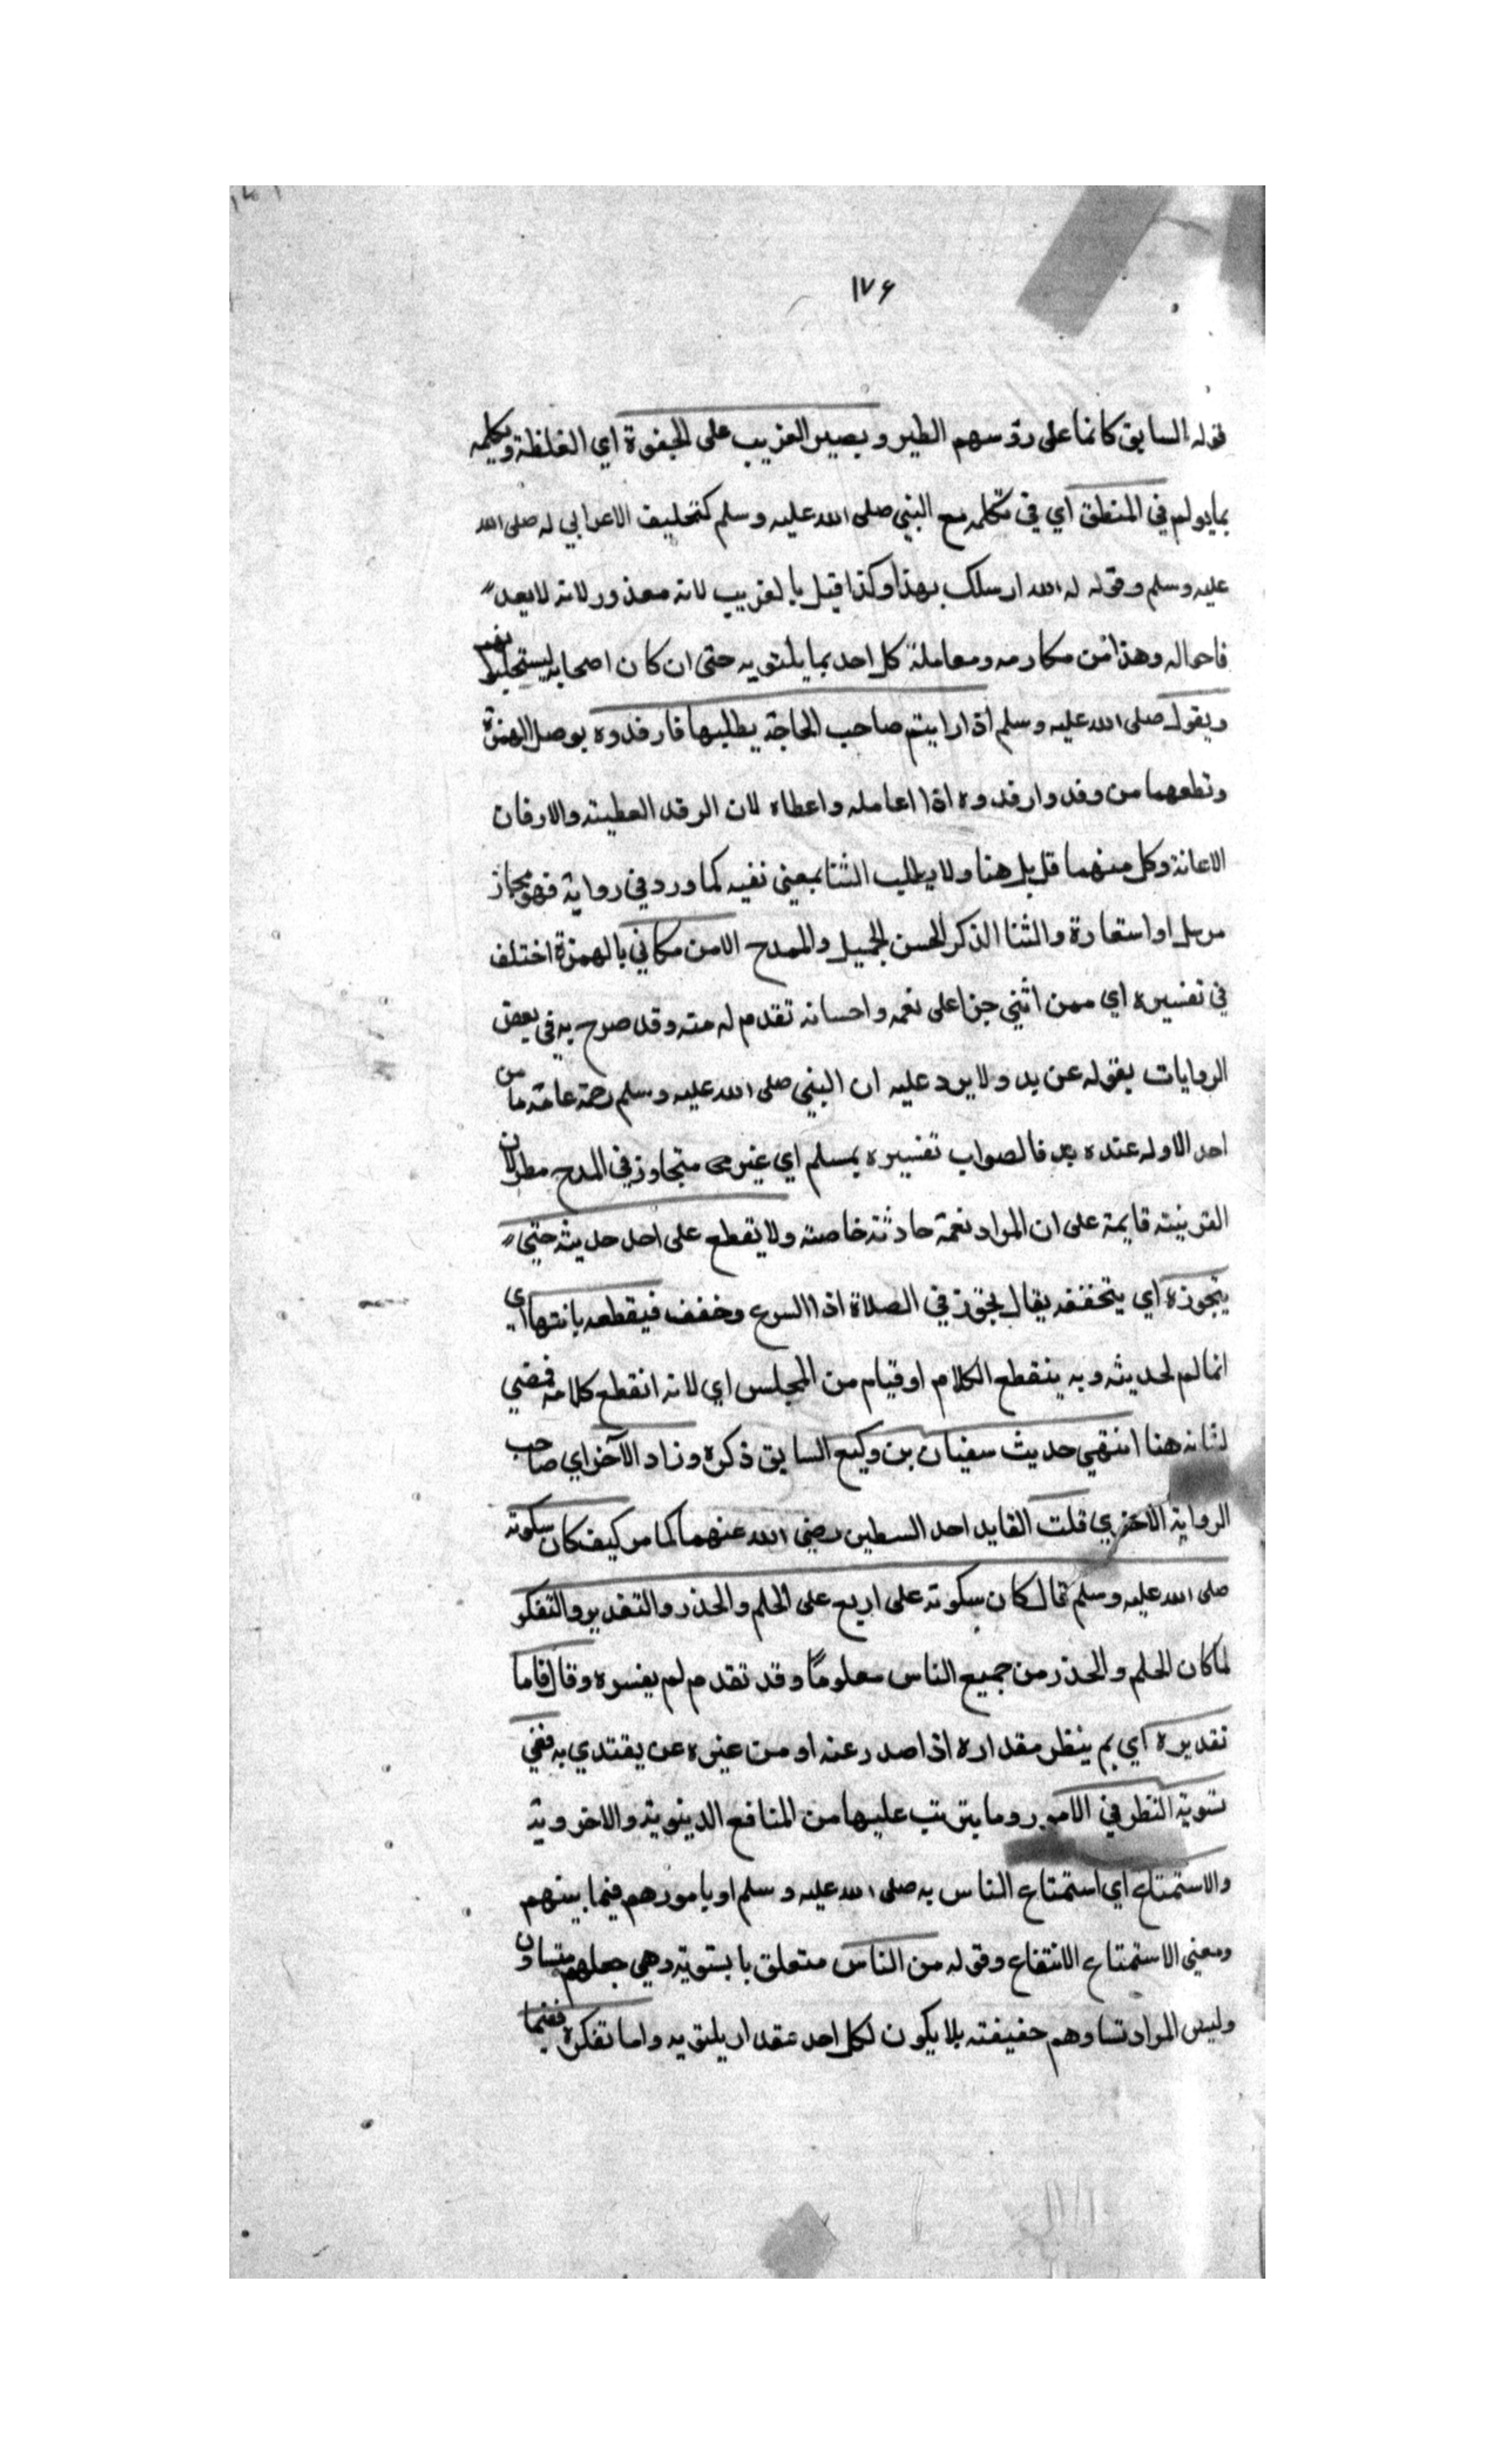 ١٧٤
قوله السابق كانما على رؤسهم الطير ويصير الغريب على الجفوة اي الغلظة ويكلمه
بما يولم في المنطق اي في تكلمه مع النبي صلى الله عليه وسلم كتحليف الاعرابي له صلى الله
عليه وسلم وقوله له الله ارسلك بهذا وكذا قيل بالغريب لانه معذور لانه لا يعد
فاحماله وهذا من مكارمه ومعاملة كل احد بما يليق به حتى ان كان اصحابه ليستجلبونهم
ويقول صلى الله عليه وسلم اذا رايتم صاحب الحاجة يطلبها فارفدوه بوصل الهمزة
وقطعهما من وفد وارفدوه اذا اعامله واعطاه لان الرفد العطية والارفان
الاعانة وكل منهما قل بل هنا ولا يطلب الثنا بمعنى نفيه كما ورد في رواية فهو مجاز
مرسل او استعارة والثنا الذكر الحسن الجميل والمدح الا من مكافي بالهمزة اختلف
في تفسيره اي ممن اثني جزا على نعمه واحسانه تقدم له منه وقد صرح به في بعض
الروايات بقوله عن يد ولا يرد عليه ان النبي صلى الله عليه وسلم رحمة عامة ما من
احد الا وله عنده يد فالصواب تفسيره بمسلم اي غير متجاوز في المدح مطر لان
القرينة قايمة على ان المراد نعمة حادثة خاصة ولا يقطع على احد حديثه حتى
يتجوزه اي يتخففه يقال تجوز في الصلاة اذا اسرع وخفف فيقطعه بانتهااي
انما لم لحديثه وبه ينقطع الكلام او قيام من المجلس اي لانه انقطع كلامه فمضي
لشانه هنا انتهي حديث سفيان بن وكيع السابق ذكره وزاد الآخر اي صاحب
الرواية الاخري قلت القايد احد السطين رضي الله عنهما كما مر كيف كان سكوته
صلى الله عليه وسلم قال كان سكوته على اربع على الحلم والحذر والتقدير والتفكر
لما كان الحلم والحذر من جميع الناس معلومًا وقد تقدم لم يفسره وقال فاما
تقديره اي بم ينظر مقداره اذا صدر عنه او من غيره عن يقتدي به ففي
تسوية النظر في الامور وما يترتب عليها من المنافع الدينوية والاخروية
والاستمتاع اي استمتاع الناس به صلى الله عليه وسلم او بامورهم فيما بينهم
ومعني الاستمتاع الانتفاع وقوله من الناس متعلق بابتسوية وهي جعلهم متساون
وليس المراد تساوهم حقيقته بلا يكون لكل احد مقدار يليق به واما تفكره ففيما